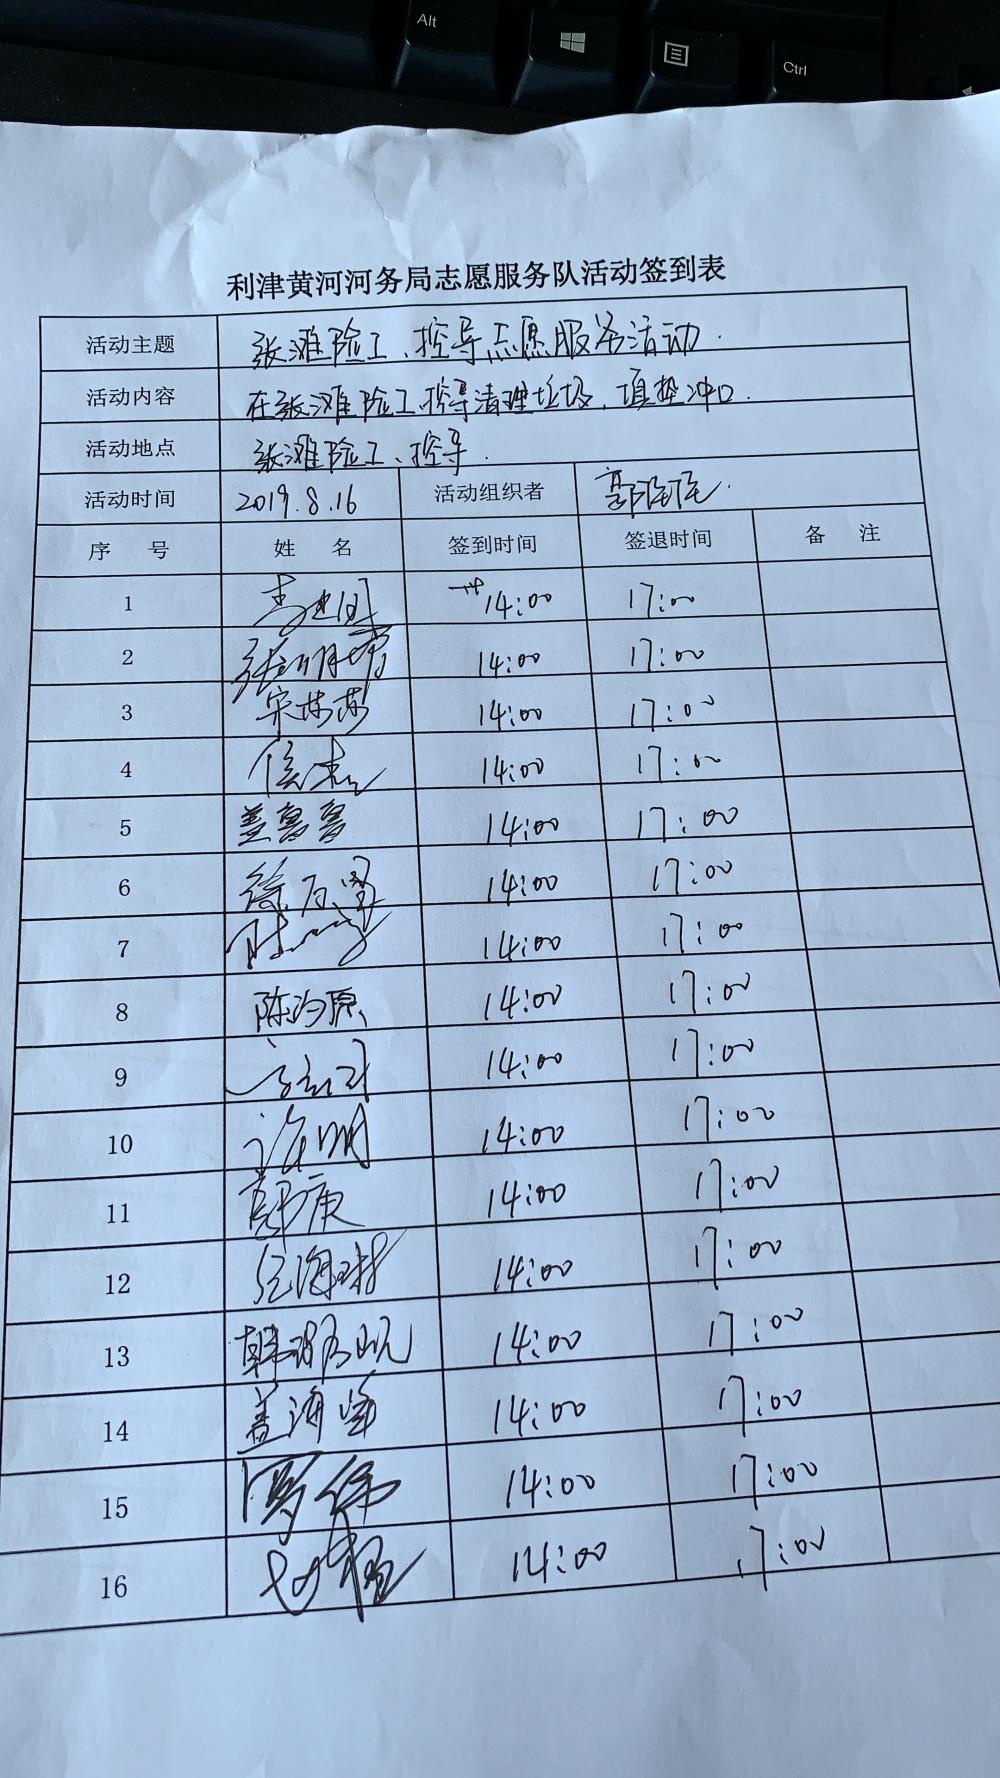 Alt
Ctrl
利津黄河河务局志愿服务队活动签到表
活动主题 张滩险工、控导志愿服务活动.
活动内容 在张滩险工控导清理垃圾、填垫冲口.
活动地点 张滩险工、控导.
活动时间 2019.8.16 活动组织者
序 号 姓 名 签到时间 签退时间 备 注
1 14:00 17:00
2 14:00 17:00
3 宋莎莎 14:00 17:00
4 侯杰 14:00 17:00
5 盖鲁鲁 14:00 17:00
6 14:00 17:00
7 14:00 17:00
8 陈沟原 14:00 17:00
9 14:00 17:00
10 许明 14:00 17:00
11 14:00 17:00
12 14:00 17:00
13 14:00 17:00
14 盖海峰 14:00 17:00
15 14:00 17:00
16 14:00 17:00